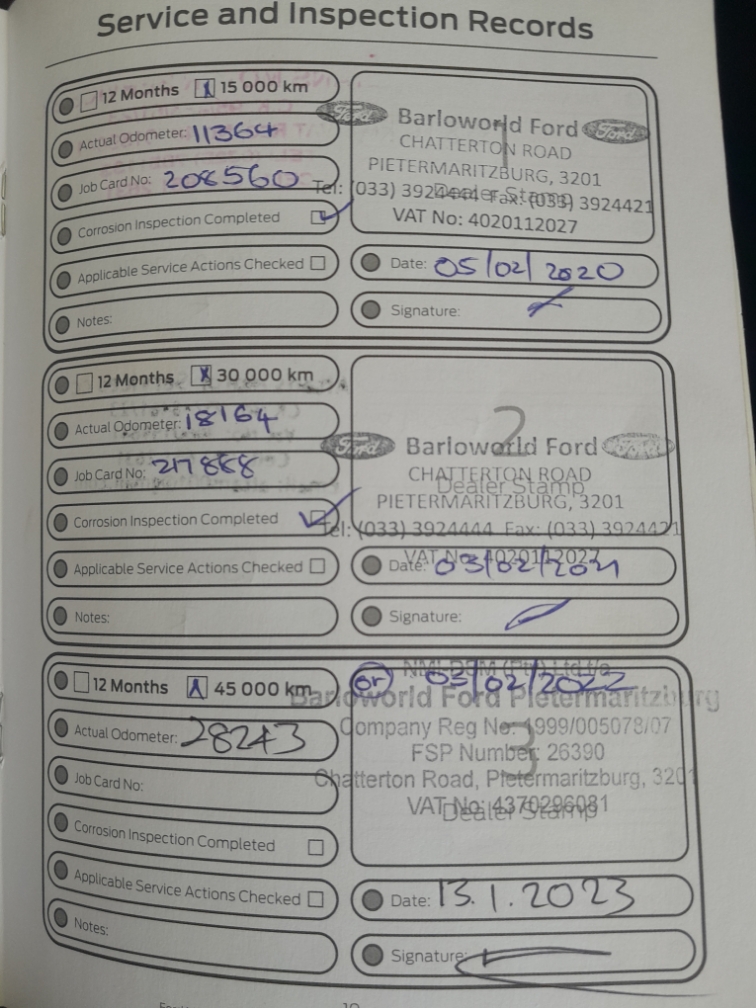 Service and Inspection Records
12 Months 15 000 km
Actual Odometer: 11364
Job Card No: 208560
Corrosion Inspection Completed
Applicable Service Actions Checked
Notes:
1
Ford Barloworld Ford Ford
CHATTERTON ROAD
PIETERMARITZBURG, 3201
Tel: (033) 3924444 Fax: (033) 3924421
Dealer Stamp
VAT No: 4020112027
Date: 05/02/2020
Signature:
12 Months X 30 000 km
Actual Odometer: 18164
Job Card No: 217888
Corrosion Inspection Completed
Applicable Service Actions Checked
Notes:
2
Ford Barloworld Ford Ford
CHATTERTON ROAD
Dealer Stamp
PIETERMARITZBURG, 3201
Tel: (033) 3924444 Fax: (033) 3924421
VAT No: 4020112027
Date: 03/02/2021
Signature:
12 Months 45 000 km
Actual Odometer: 28243
Job Card No:
Corrosion Inspection Completed
Applicable Service Actions Checked
Notes:
or 03/02/2022
Barloworld Ford Pietermaritzburg
Company Reg No: 1999/005078/07
3
FSP Number: 26390
Chatterton Road, Pietermaritzburg, 3201
VAT No: 4370296081
Dealer Stamp
Date: 13.1.2023
Signature: